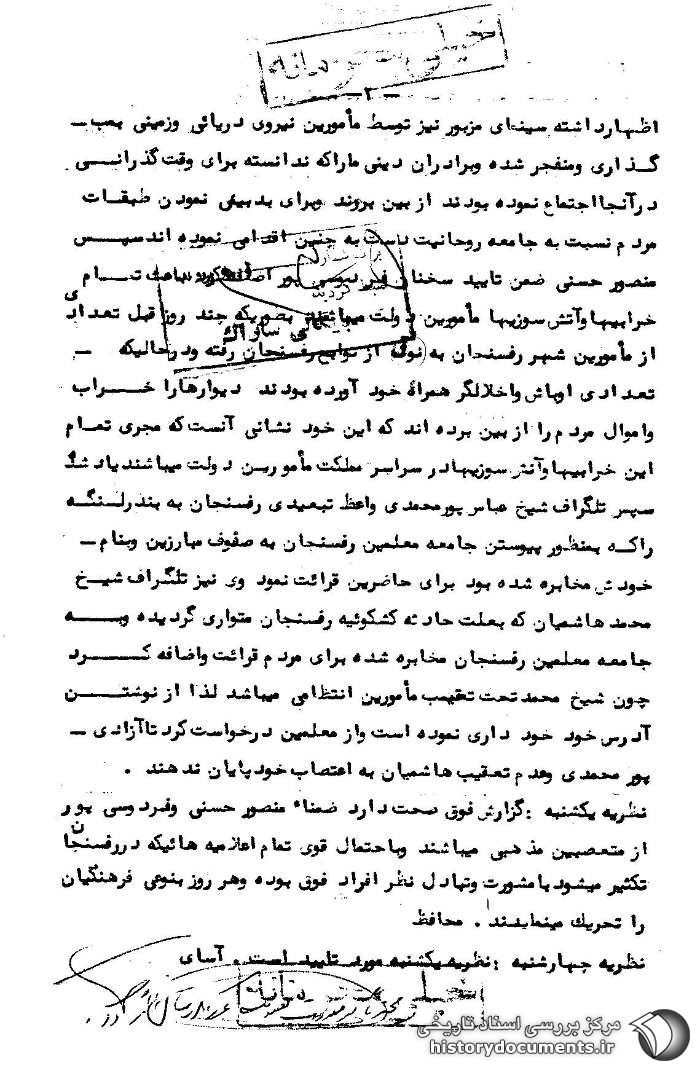 خیلی محرمانه
ـ ۲ ـ
اظهارداشته سینمای مزبور نیز توسط مأمورین نیروی دریائی وزمینی بمب ـ
گذاری ومنفجر شده وبرادران دینی ماراکه ندانسته برای وقت گذرانی
درآنجا اجتماع نموده بودند از بین بروند وبرای بدبینی نمودن طبقات
مردم نسبت به جامعه روحانیت دست به چنین اقدامی نموده اند سپس
منصور حسنی ضمن تایید سخنان فردوسی پور اضافه کرد باعث تمام
خرابیها وآتش سوزیها مأمورین دولت میباشند بطوریکه چند روز قبل تعدادی
از مأمورین شهر رفسنجان به نوق از توابع رفسنجان رفته ودرحالیکه ـ
تعدادی اوباش واخلالگر همراه خود آورده بودند دیوارها را خراب
واموال مردم را از بین برده اند که این خود نشانی آنست که مجری تمام
این خرابیها وآتش سوزیها در سراسر مملکت مأمورین دولت میباشند یاد شده
سپس تلگراف شیخ عباس پورمحمدی واعظ تبعیدی رفسنجان به بندرلنگه
راکه بمنظور پیوستن جامعه معلمین رفسنجان به صفوف مبارزین وبنام ـ
خودش مخابره شده بود برای حاضرین قرائت نمود وی نیز تلگراف شیخ
محمد هاشمیان که بعلت حادثه کشکوئیه رفسنجان متواری گردیده وبه
جامعه معلمین رفسنجان مخابره شده برای مردم قرائت واضافه کرد
چون شیخ محمد تحت تعقیب مأمورین انتظامی میباشد لذا از نوشتن
آدرس خود خود داری نموده است واز معلمین درخواست کرد تاآزادی ـ
پور محمدی وعدم تعقیب هاشمیان به اعتصاب خود پایان ندهند .
نظریه یکشنبه : گزارش فوق صحت دارد ضمناً منصور حسنی وفردوسی پور
از متعصبین مذهبی میباشند وباحتمال قوی تمام اعلامیه هائیکه دررفسنجان
تکثیر میشود با مشورت وتبادل نظر افراد فوق بوده وهر روز بنوعی فرهنگیان
را تحریک مینمایند . محافظ
نظریه چهارشنبه : نظریه یکشنبه مورد تایید است . آسای
خیلی محرمانه
مرکز بررسی اسناد تاریخی
historydocuments.ir